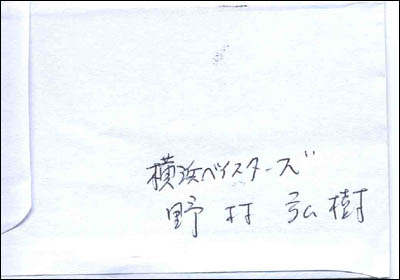 横浜ベイスターズ
野村弘樹